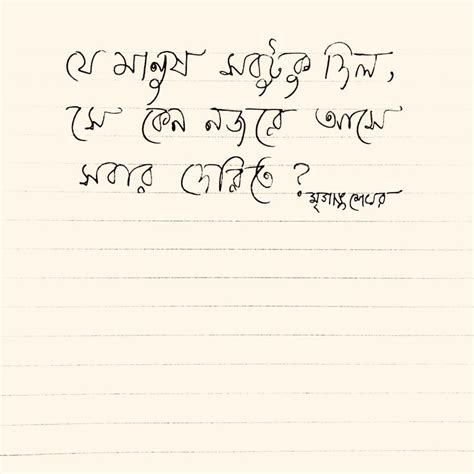 যে মানুষ সবটুকু দিল,
সে কেন নজরে আসে
সবার দেরিতে ?
মৃগাঙ্কশেখর